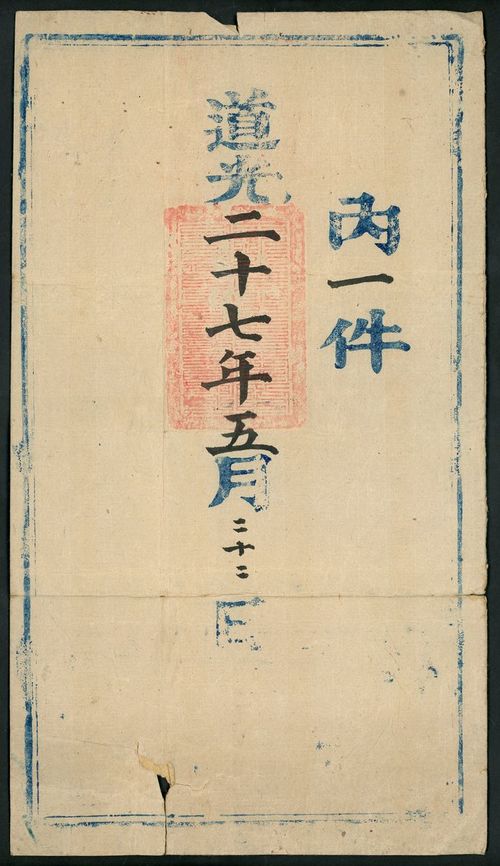 内一件
道光二十七年五月二十二日